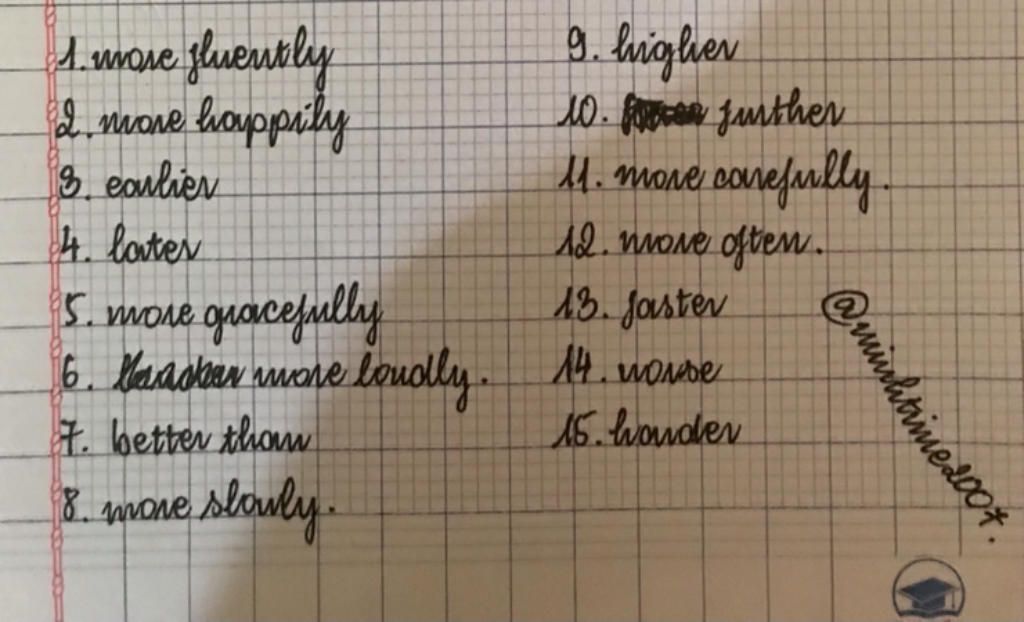 1. more fluently
2. more happily
3. earlier
4. later
5. more gracefully
6. more loudly.
7. better than
8. more slowly.
9. higher
10. further
11. more carefully.
12. more often.
13. faster
14. worse
15. harder